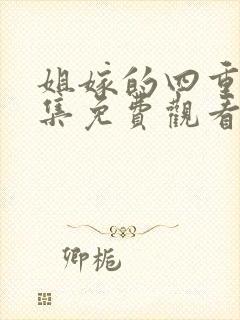 姐嫁的四重
集免費觀看
卿栀